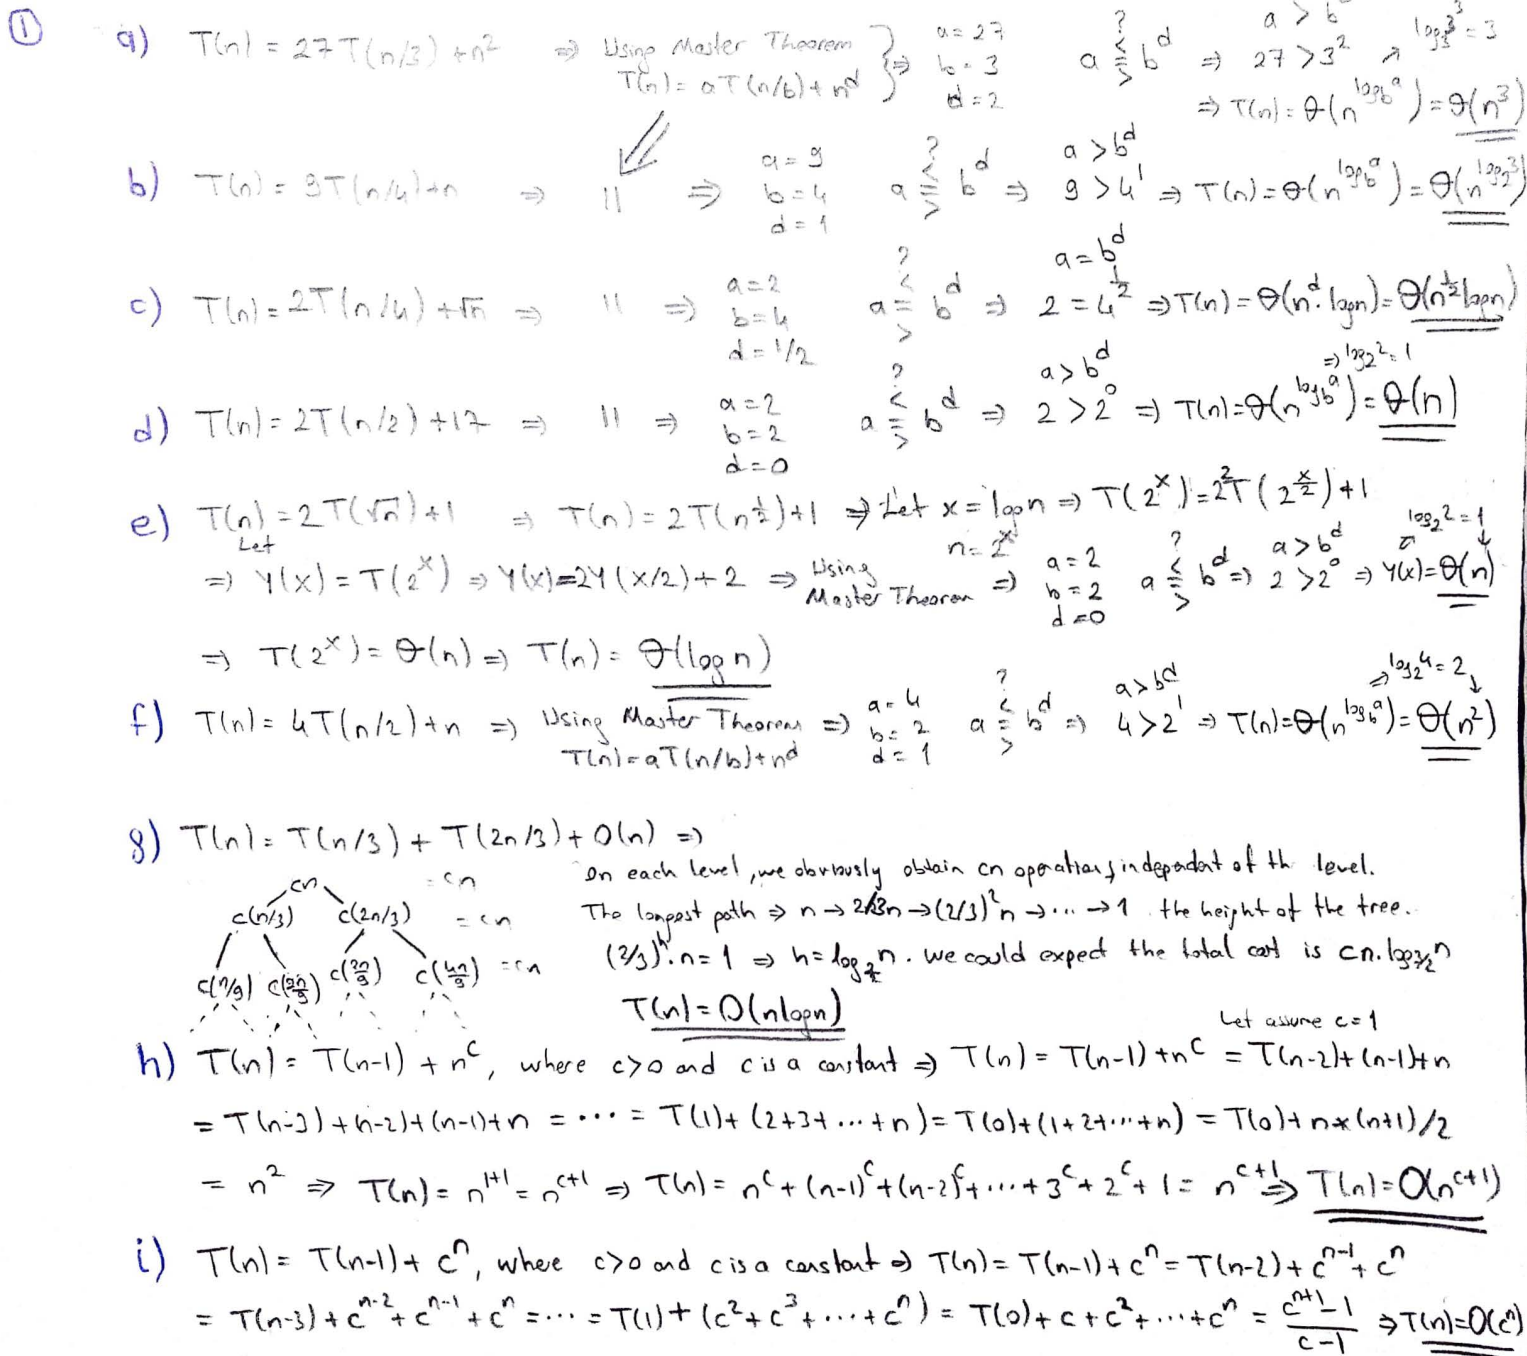 ① a) T(n) = 27T(n/3) + n² ⇒ Using Master Theorem T(n) = aT(n/b) + n^d } ⇒ a = 27 b = 3 d = 2 a ≷ b^d ? ⇒ a > b 27 > 3² ↗ log₃3³ = 3
⇒ T(n) = Θ(n^(log_b a)) = Θ(n³)
b) T(n) = 9T(n/4) + n ⇒ || ⇒ a = 9 b = 4 d = 1 a ≷ b^d ? ⇒ a > b^d 9 > 4¹ ⇒ T(n) = Θ(n^(log_b a)) = Θ(n^(log₂3))
c) T(n) = 2T(n/4) + √n ⇒ || ⇒ a = 2 b = 4 d = 1/2 a ≷ b^d ? ⇒ a = b^d 2 = 4^½ ⇒ T(n) = Θ(n^d. logn) = Θ(n^½ logn)
d) T(n) = 2T(n/2) + 17 ⇒ || ⇒ a = 2 b = 2 d = 0 a ≷ b^d ? ⇒ a > b^d 2 > 2⁰ ⇒ T(n) = Θ(n^(log_b a)) ⇒ log₂2 = 1 = Θ(n)
e) T(n) = 2T(√n) + 1 ⇒ T(n) = 2T(n^½) + 1 ⇒ Let x = logn n = 2^x ⇒ T(2^x) = 2T(2^(x/2)) + 1
Let ⇒ Y(x) = T(2^x) ⇒ Y(x) = 2Y(x/2) + 2 ⇒ Using Master Theorem ⇒ a = 2 b = 2 d = 0 a ≷ b^d ? ⇒ a > b^d 2 > 2⁰ ⇒ log₂2 = 1 Y(x) = Θ(n)
⇒ T(2^x) = Θ(n) ⇒ T(n) = Θ(logn)
f) T(n) = 4T(n/2) + n ⇒ Using Master Theorem T(n) = aT(n/b) + n^d ⇒ a = 4 b = 2 d = 1 a ≷ b^d ? ⇒ a > b^d 4 > 2¹ ⇒ T(n) = Θ(n^(log_b a)) ⇒ log₂4 = 2 = Θ(n²)
g) T(n) = T(n/3) + T(2n/3) + O(n) ⇒
cn = cn
c(n/3) c(2n/3) = cn
c(n/9) c(2n/9) c(2n/9) c(4n/9) = cn
On each level, we obviously obtain cn operations, independent of th level.
The longest path ⇒ n → 2/3n → (2/3)²n → ... → 1 the height of the tree.
(2/3)^h.n = 1 ⇒ h = log_(3/2) n. we could expect the total cost is cn.log_(3/2) n
T(n) = O(nlogn)
Let assume c = 1
h) T(n) = T(n-1) + n^c, where c>0 and c is a constant ⇒ T(n) = T(n-1) + n^c = T(n-2) + (n-1) + n
= T(n-3) + (n-2) + (n-1) + n = ... = T(1) + (2+3+...+n) = T(0) + (1+2+...+n) = T(0) + n*(n+1)/2
= n² ⇒ T(n) = n^(1+1) = n^(c+1) ⇒ T(n) = n^c + (n-1)^c + (n-2)^c + ... + 3^c + 2^c + 1 = n^(c+1) ⇒ T(n) = O(n^(c+1))
i) T(n) = T(n-1) + c^n, where c>0 and c is a constant ⇒ T(n) = T(n-1) + c^n = T(n-2) + c^(n-1) + c^n
= T(n-3) + c^(n-2) + c^(n-1) + c^n = ... = T(1) + (c² + c³ + ... + c^n) = T(0) + c + c² + ... + c^n = (c^(n+1) - 1)/(c-1) ⇒ T(n) = O(c^n)